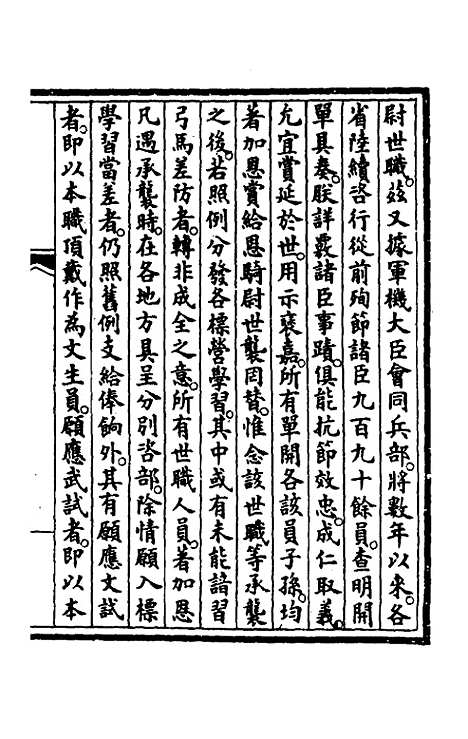 尉世職。茲又據軍機大臣會同兵部。將數年以來。各
省陸續咨行從前殉節諸臣九百九十餘員。查明開
單具奏。朕詳覈諸臣事蹟。俱能抗節效忠。成仁取義。
允宜賞延於世。用示褒嘉。所有單開各該員子孫。均
著加恩賞給恩騎尉世襲罔替。惟念該世職等承襲
之後。若照例分發各標營學習。其中或有未能諳習
弓馬差防者。轉非成全之意。所有世職人員。著加恩
凡遇承襲時。在各地方具呈分別咨部。除情願入標
學習當差者。仍照舊例支給俸餉外。其有願應文試
者。即以本職頂戴作為文生員。願應武試者。即以本